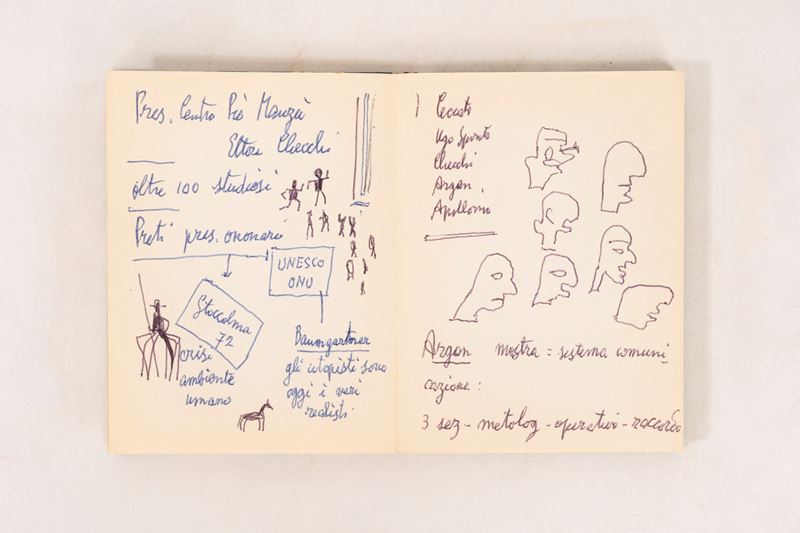 Pres. Centro Pio Manzù
Ettore Checchi
oltre 100 studiosi
Preti pres. onorario
UNESCO
ONU
Stoccolma
72
crisi
ambiente
umano
Baumgartner
gli utopisti sono
oggi i veri
realisti
Ugo Spirito
Checchi
Argan
Apollonio
Argan mostra = sistema comuni
cazione :
3 sez - metolog - operativo - raccordo